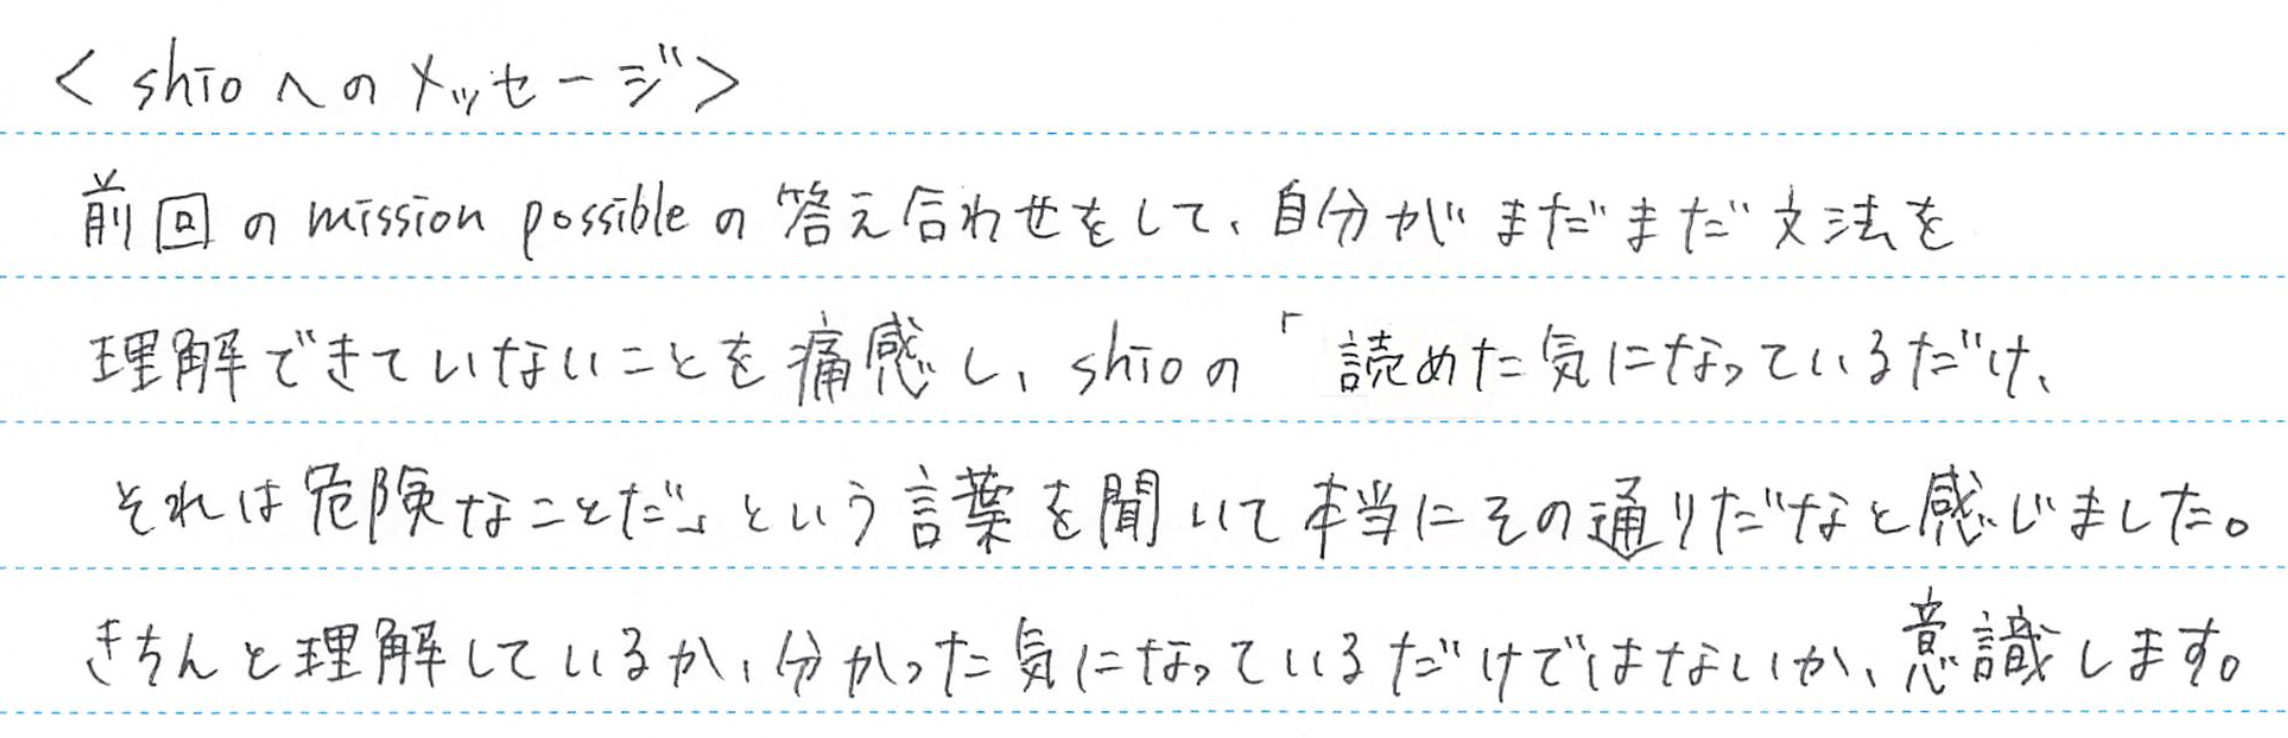 <shioへのメッセージ>
前回のmission possibleの答え合わせをして、自分がまだまだ文法を
理解できていないことを痛感し、shioの「読めた気になっているだけ、
それは危険なことだ」という言葉を聞いて本当にその通りだなと感じました。
きちんと理解しているか、分かった気になっているだけではないか、意識します。